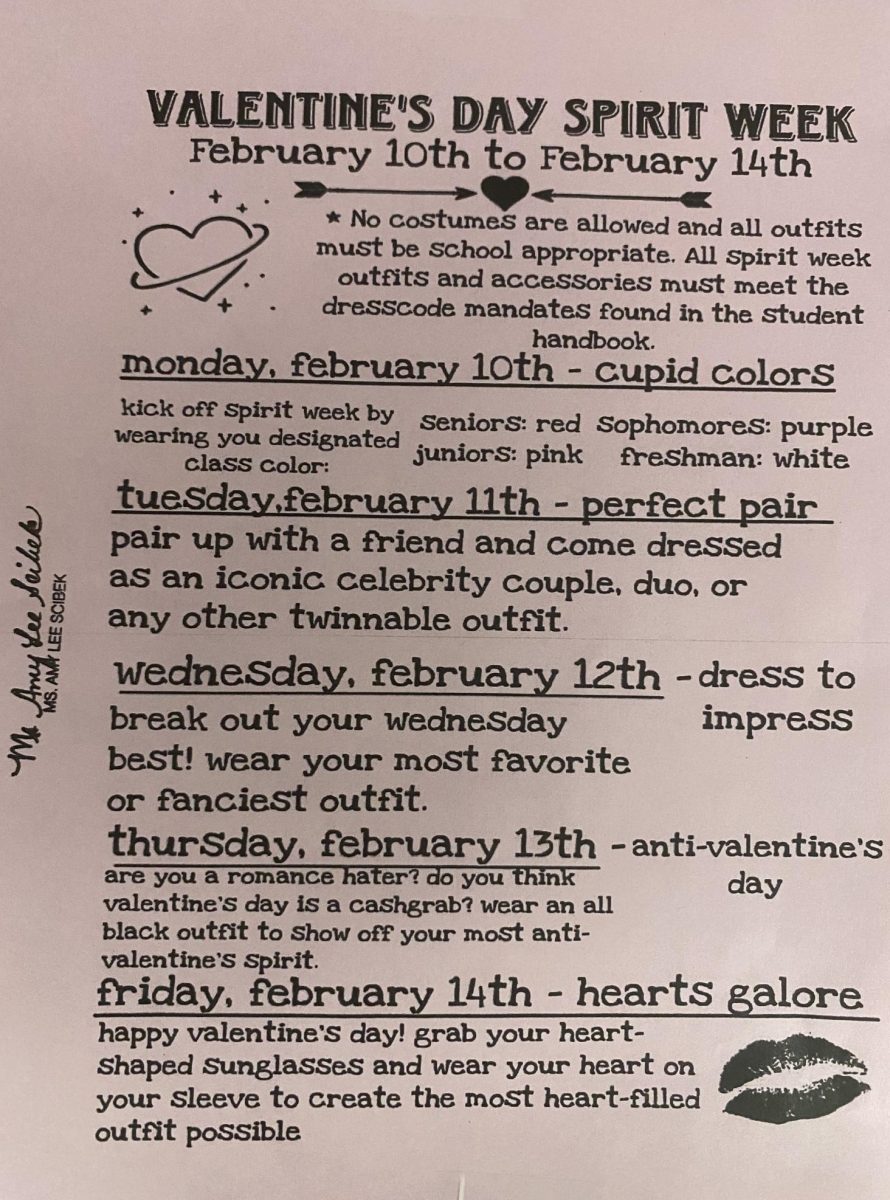 VALENTINE'S DAY SPIRIT WEEK
February 10th to February 14th
* No costumes are allowed and all outfits
must be school appropriate. All spirit week
outfits and accessories must meet the
dresscode mandates found in the student
handbook.
monday, february 10th - cupid colors
kick off spirit week by
wearing you designated
class color:
seniors: red sophomores: purple
juniors: pink freshman: white
tuesday,february 11th - perfect pair
pair up with a friend and come dressed
as an iconic celebrity couple, duo, or
any other twinnable outfit.
wednesday, february 12th - dress to
impress
break out your wednesday
best! wear your most favorite
or fanciest outfit.
thursday, february 13th - anti-valentine's
day
are you a romance hater? do you think
valentine's day is a cashgrab? wear an all
black outfit to show off your most anti-
valentine's spirit.
friday, february 14th - hearts galore
happy valentine's day! grab your heart-
shaped sunglasses and wear your heart on
your sleeve to create the most heart-filled
outfit possible
Ms. Amy Lee Scibek
MS. AMY LEE SCIBEK